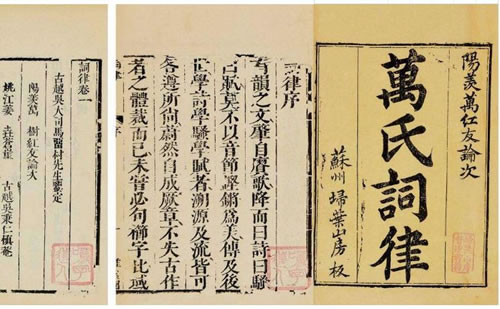 陽羨萬紅友論次
萬氏詞律
蘇州埽葉山房板
律序
有韻之文肇自賡歌降而曰詩曰騷
曰賦莫不以音節鏗鏘爲美傳及後
世學詩學騷學賦者溯源及流皆可
各遵所尚蔚然自成厥章不失古作
者之體裁而已未嘗必句櫛字比或
詞律卷一
古越吳大司馬留村先生鑒定
陽羨萬 樹紅友論次
姚江姜 垚蒼崖 古越吳秉仁慎菴